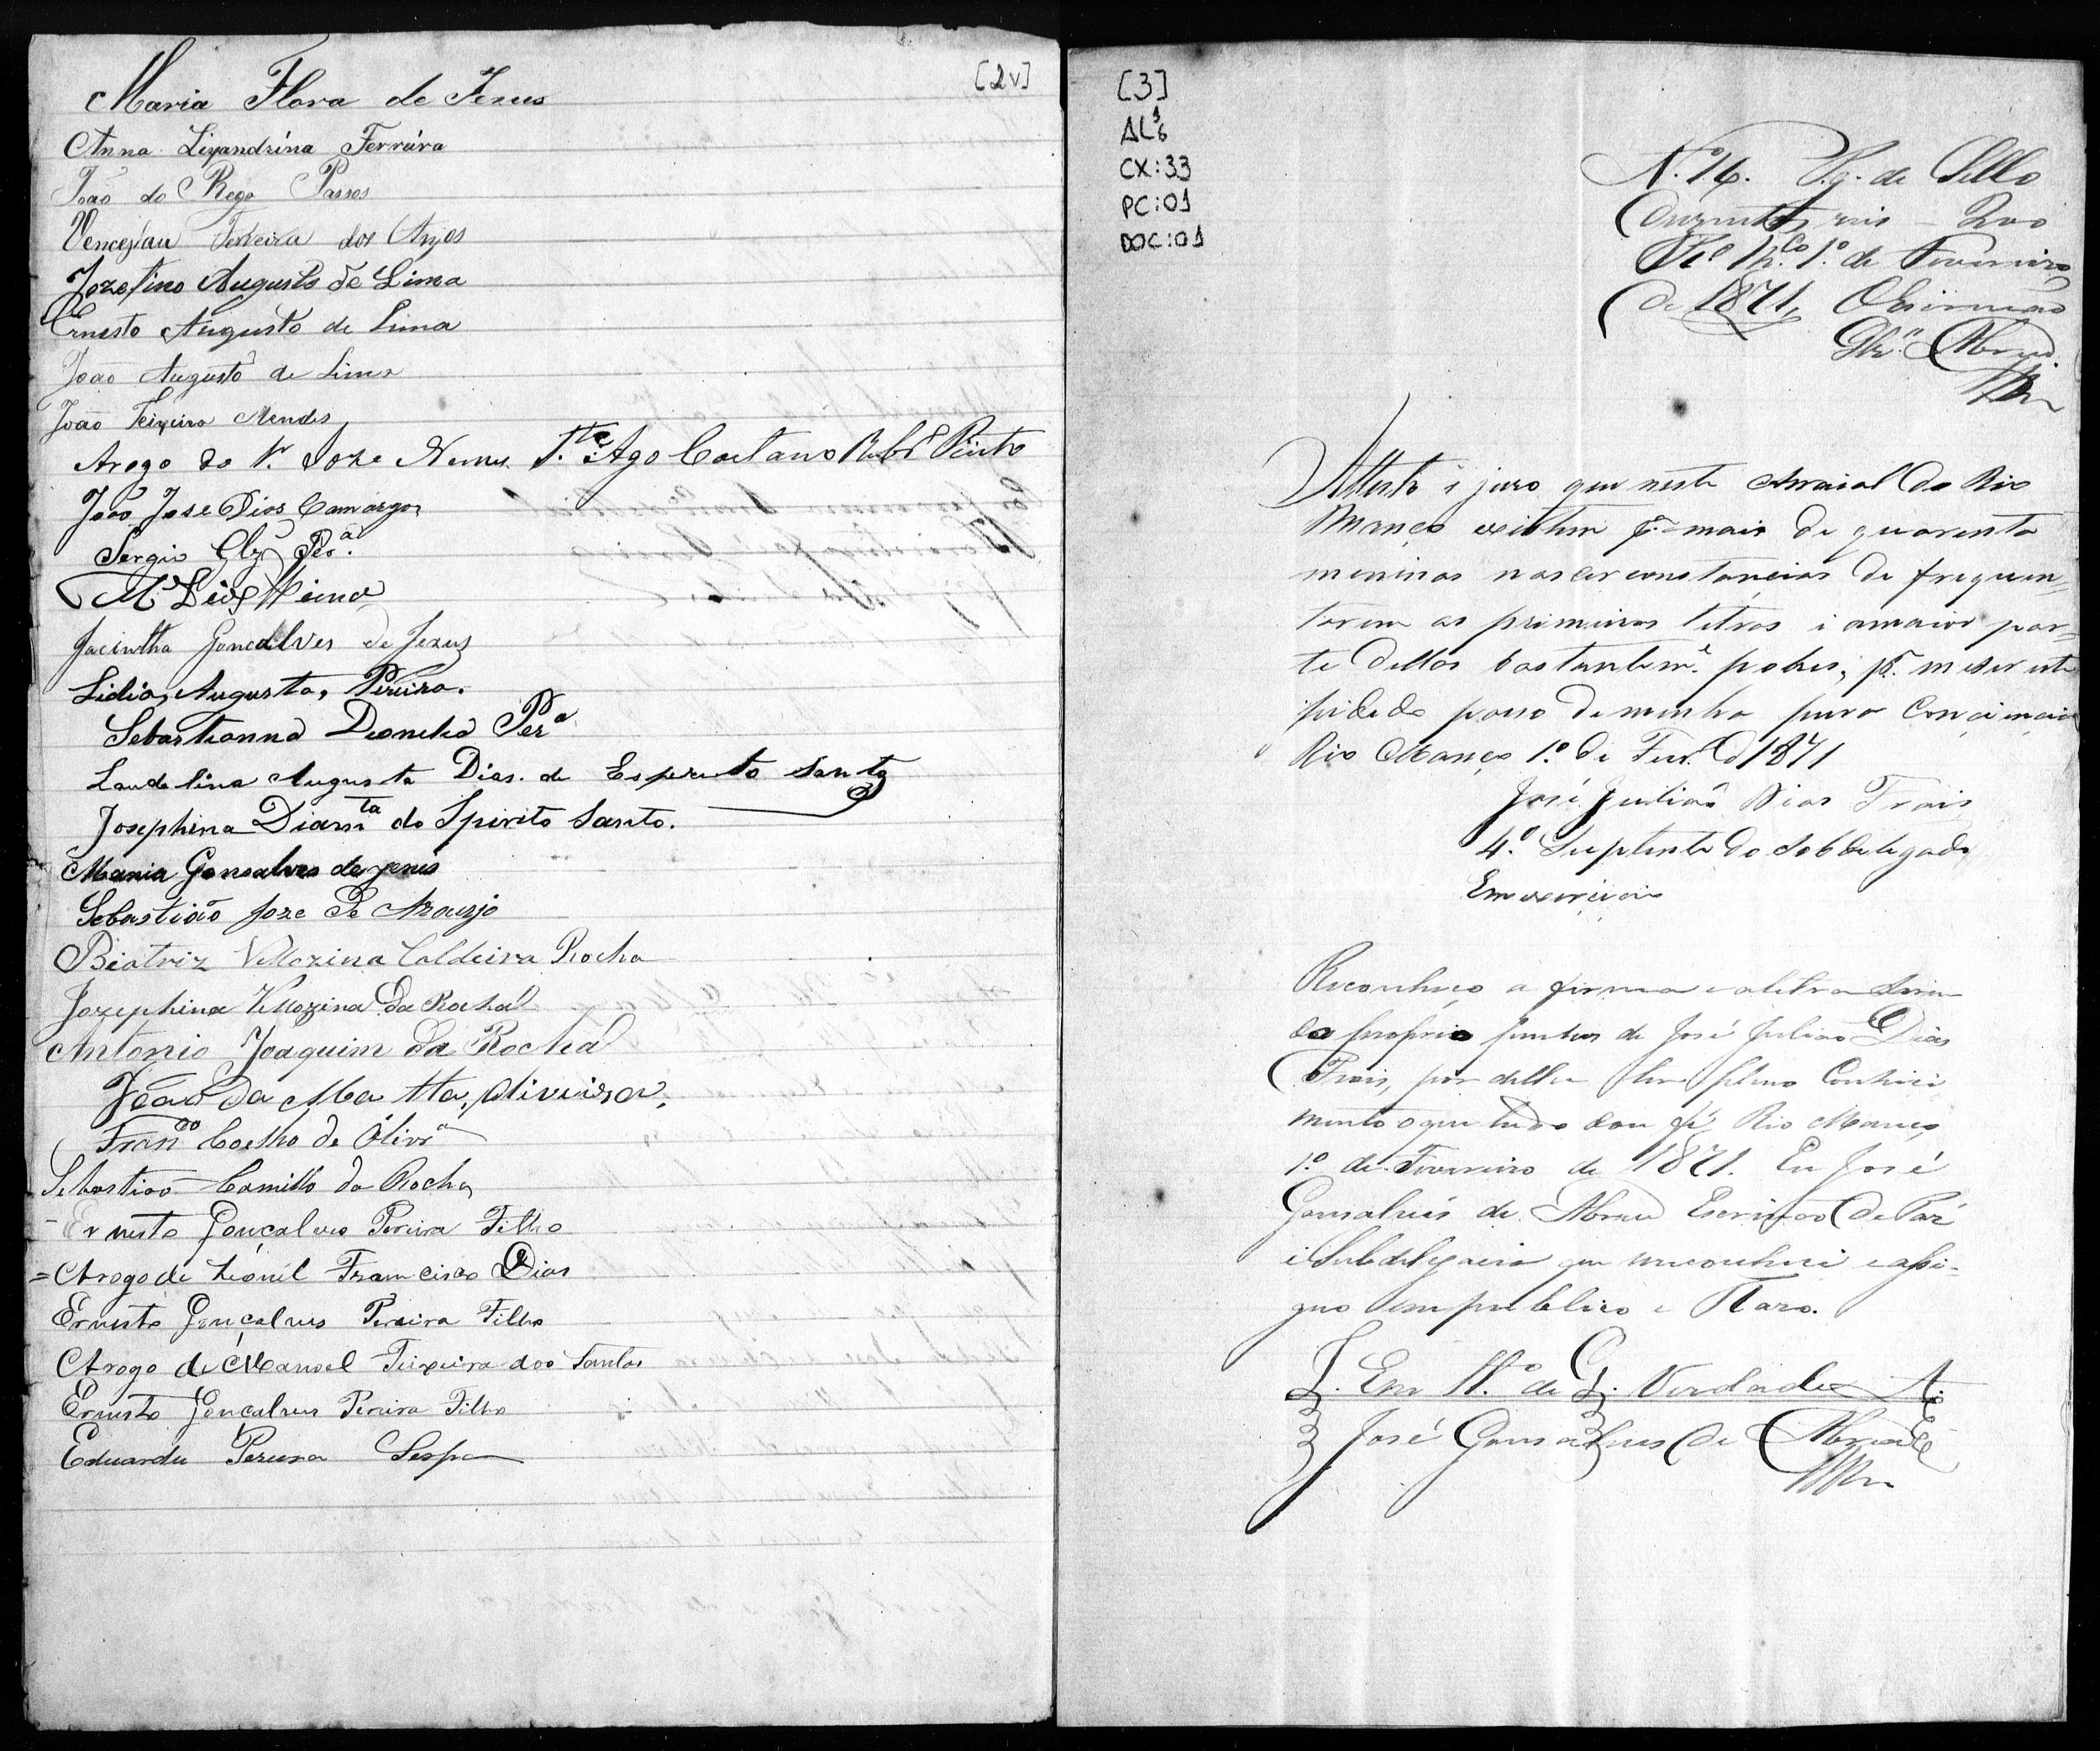 [2v]
Maria Flora de Jezus
Anna Lixandrina Ferrára
João do Rego Passos
Venceslau Ferreira dos Anjos
Jozefino Augusto de Lima
Ernesto Augusto de Lima
João Augusto de Lima
João Teixeira Mendes
Arogo do Sr. Joze Nunes Caetano Pinto
João Jose Dias Camargos
Sergio Glz Per.ª
Jacintha Goncalves de Jezus
Lidia, Augusta, Pereira.
Sebastianna Per.ª
Laudelina Augusta Dias. de Esperito Santo
Josephina Diam.ta do Spirito Santo.
Maria Gonsalves de jesus
Sebastião Joze de Araujo
Beatriz Vellozina Caldeira Rocha
Jozephina Vellozina da Rocha
Antonio Joaquim da Rocha
João da Matta, Oliveira,
Fran.co Coelho de Olivr.ª
Sebastião Camillo da Rocha
Ernesto Gonçalves Pereira Filho
= Arogo de Leonil Francisco Dias
Ernesto Gonçalves Pereira Filho
Arogo de Manoel Teixeira dos Santos
Ernesto Gonçalves Pereira Filho
Eduardu Pereira
[3]
AL6
CX:33
PC:01
DOC:01
N. 16. Pg. de Sello
Duzentos reis - 200
1.º de Fevereiro
de 1871, O Escrivão
Abreu
Attesto i juro que neste Arraial do Rio
Manço existem p.ª mais de quarenta
meninos nas circonstancias de frequen=
tarem as primeiras letras i amaior par=
te dellos bastantem.e pobres,
pidido paso deminha pura
Rio Manço 1.º de Fev.º d 1871
José Julião Dias Trais
4.º Suplente do Sobdelegado
Em exercicio
Reconheço a firma e a letra
do proprio punho de José Julião Dias
Trais, por della ter pleno Conheci
mento o que tudo dou fé. Rio Manço
1.º de Fevereiro de 1871. Eu José
Gonsalves de Abreu Escrivão de Paz
i Subdelegacia que reconheci e assi-
gno em publico e Razo.
Em tt.º de Verdade
José Gonsalves de Abreu